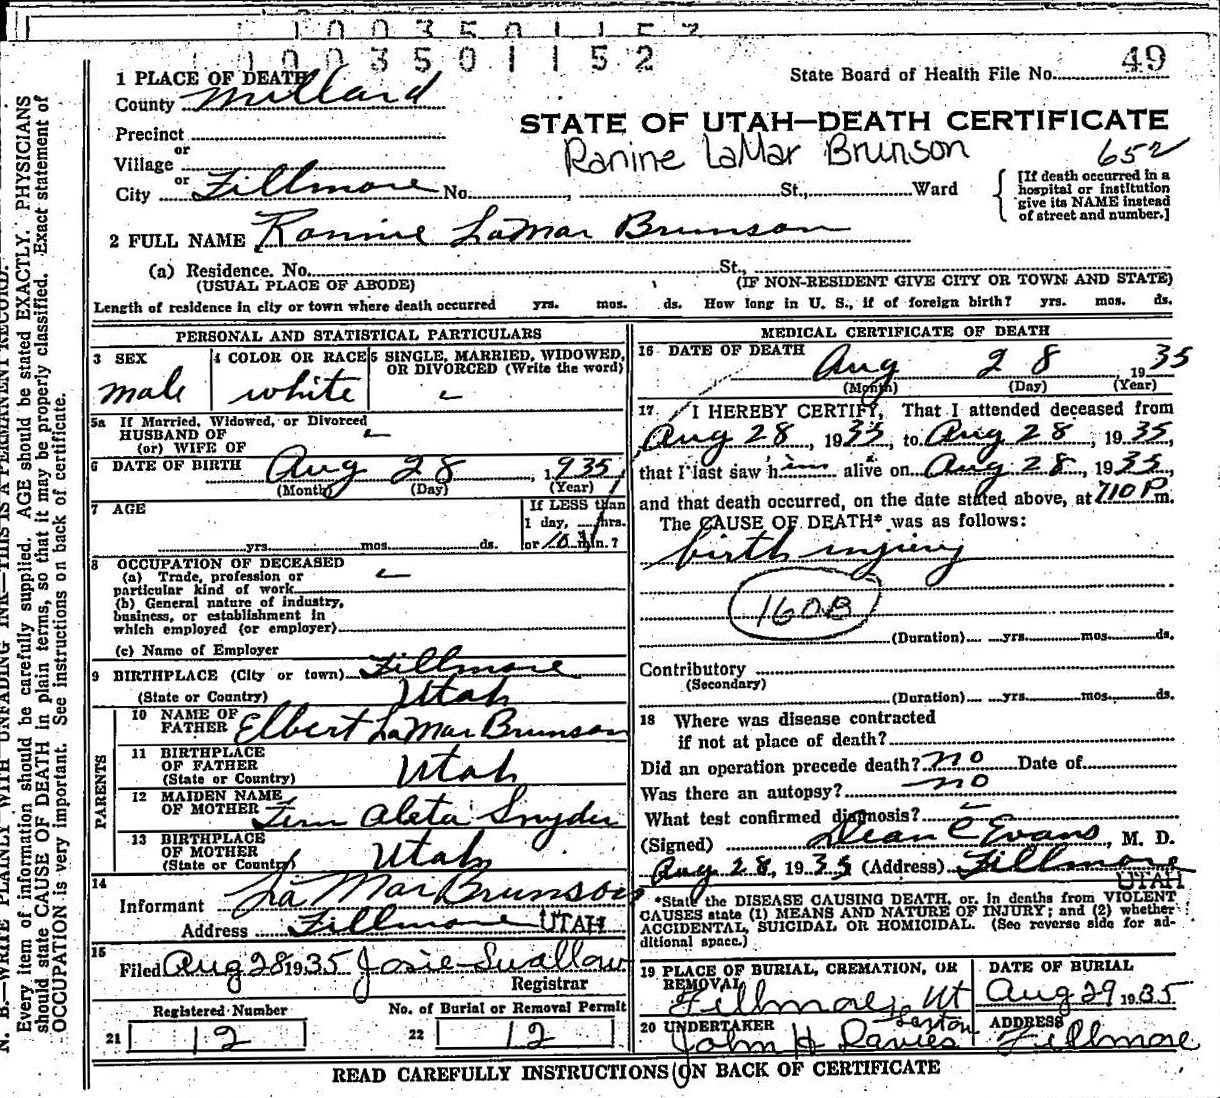 1003501152
1003501152
State Board of Health File No. 49
1 PLACE OF DEATH
County Millard
STATE OF UTAH—DEATH CERTIFICATE
Precinct
or
Ranine LaMar Brunson 652
Village
or
City Fillmore No. , St., Ward
[If death occurred in a
hospital or institution
give its NAME instead
of street and number.]
2 FULL NAME Rannie LaMar Brunson
(a) Residence. No. St.,
(USUAL PLACE OF ABODE) (IF NON-RESIDENT GIVE CITY OR TOWN AND STATE)
Length of residence in city or town where death occurred yrs. mos. ds. How long in U. S., if of foreign birth? yrs. mos. ds.
PERSONAL AND STATISTICAL PARTICULARS
3 SEX
male
4 COLOR OR RACE
white
5 SINGLE, MARRIED, WIDOWED,
OR DIVORCED (Write the word)
5a If Married, Widowed, or Divorced
HUSBAND OF
(or) WIFE OF
6 DATE OF BIRTH Aug 28, 1935
(Month) (Day) (Year)
7 AGE
yrs. mos. ds.
If LESS than
1 day, hrs.
or 10 min.?
8 OCCUPATION OF DECEASED
(a) Trade, profession or
particular kind of work
(b) General nature of industry,
business, or establishment in
which employed (or employer)
(c) Name of Employer
9 BIRTHPLACE (City or town) Fillmore
(State or Country) Utah
PARENTS
10 NAME OF
FATHER Elbert LaMar Brunson
11 BIRTHPLACE
OF FATHER
(State or Country) Utah
12 MAIDEN NAME
OF MOTHER Fern Aleta Snyder
13 BIRTHPLACE
OF MOTHER
(State or Country) Utah
14
Informant La Mar Brunson
Address Fillmore UTAH
15
Filed Aug 28 1935 Josie Swallow
Registrar
Registered Number
21 12
No. of Burial or Removal Permit
22 12
MEDICAL CERTIFICATE OF DEATH
16 DATE OF DEATH
Aug 28 1935
(Month) (Day) (Year)
17 I HEREBY CERTIFY, That I attended deceased from
Aug 28, 1935, to Aug 28, 1935,
that I last saw him alive on Aug 28, 1935
and that death occurred, on the date stated above, at 710 P m.
The CAUSE OF DEATH* was as follows:
birth injury
160B
(Duration) yrs. mos. ds.
Contributory
(Secondary)
(Duration) yrs. mos. ds.
18 Where was disease contracted
if not at place of death?
Did an operation precede death? no Date of
Was there an autopsy? no
What test confirmed diagnosis?
(Signed) Dean C Evans, M. D.
Aug 28, 1935 (Address) Fillmore
UTAH
*State the DISEASE CAUSING DEATH, or, in deaths from VIOLENT
CAUSES state (1) MEANS AND NATURE OF INJURY; and (2) whether
ACCIDENTAL, SUICIDAL OR HOMICIDAL. (See reverse side for ad-
ditional space.)
19 PLACE OF BURIAL, CREMATION, OR
REMOVAL
Fillmore, Ut
DATE OF BURIAL
Aug 29 1935
20 UNDERTAKER Sexton
John H Davies
ADDRESS
Fillmore
READ CAREFULLY INSTRUCTIONS ON BACK OF CERTIFICATE
N. B.—WRITE PLAINLY WITH UNFADING INK—THIS IS A PERMANENT RECORD.
Every item of information should be carefully supplied. AGE should be stated EXACTLY. PHYSICIANS
should state CAUSE OF DEATH in plain terms, so that it may be properly classified. Exact statement of
OCCUPATION is very important. See instructions on back of certificate.